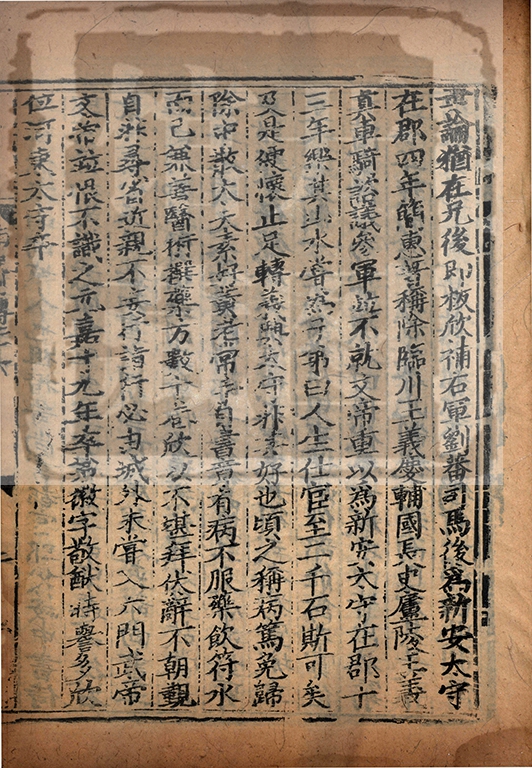 重論猶在兄後即板欣補右軍劉蕃司馬後爲新安太守
在郡四年簡惠著稱除臨川王義慶輔國長史廬陵王義
真車騎諮議參軍並不就文帝重以爲新安太守在郡十
三年樂其山水嘗謂子弟曰人生仕宦至二千石斯可矣
及是便懷止足轉義興太守非其好也頃之稱病篤免歸
除中散大夫素好黃老常手自書章有病不服藥飲符水
而已兼善醫術撰藥方數十卷欣以不堪拜伏辭不朝覲
自非尋省近親不妄行詣行必由城外未嘗入六門武帝
文帝並恨不識之元嘉十九年卒弟徽字敬猷時譽多欣
位河東太守卒